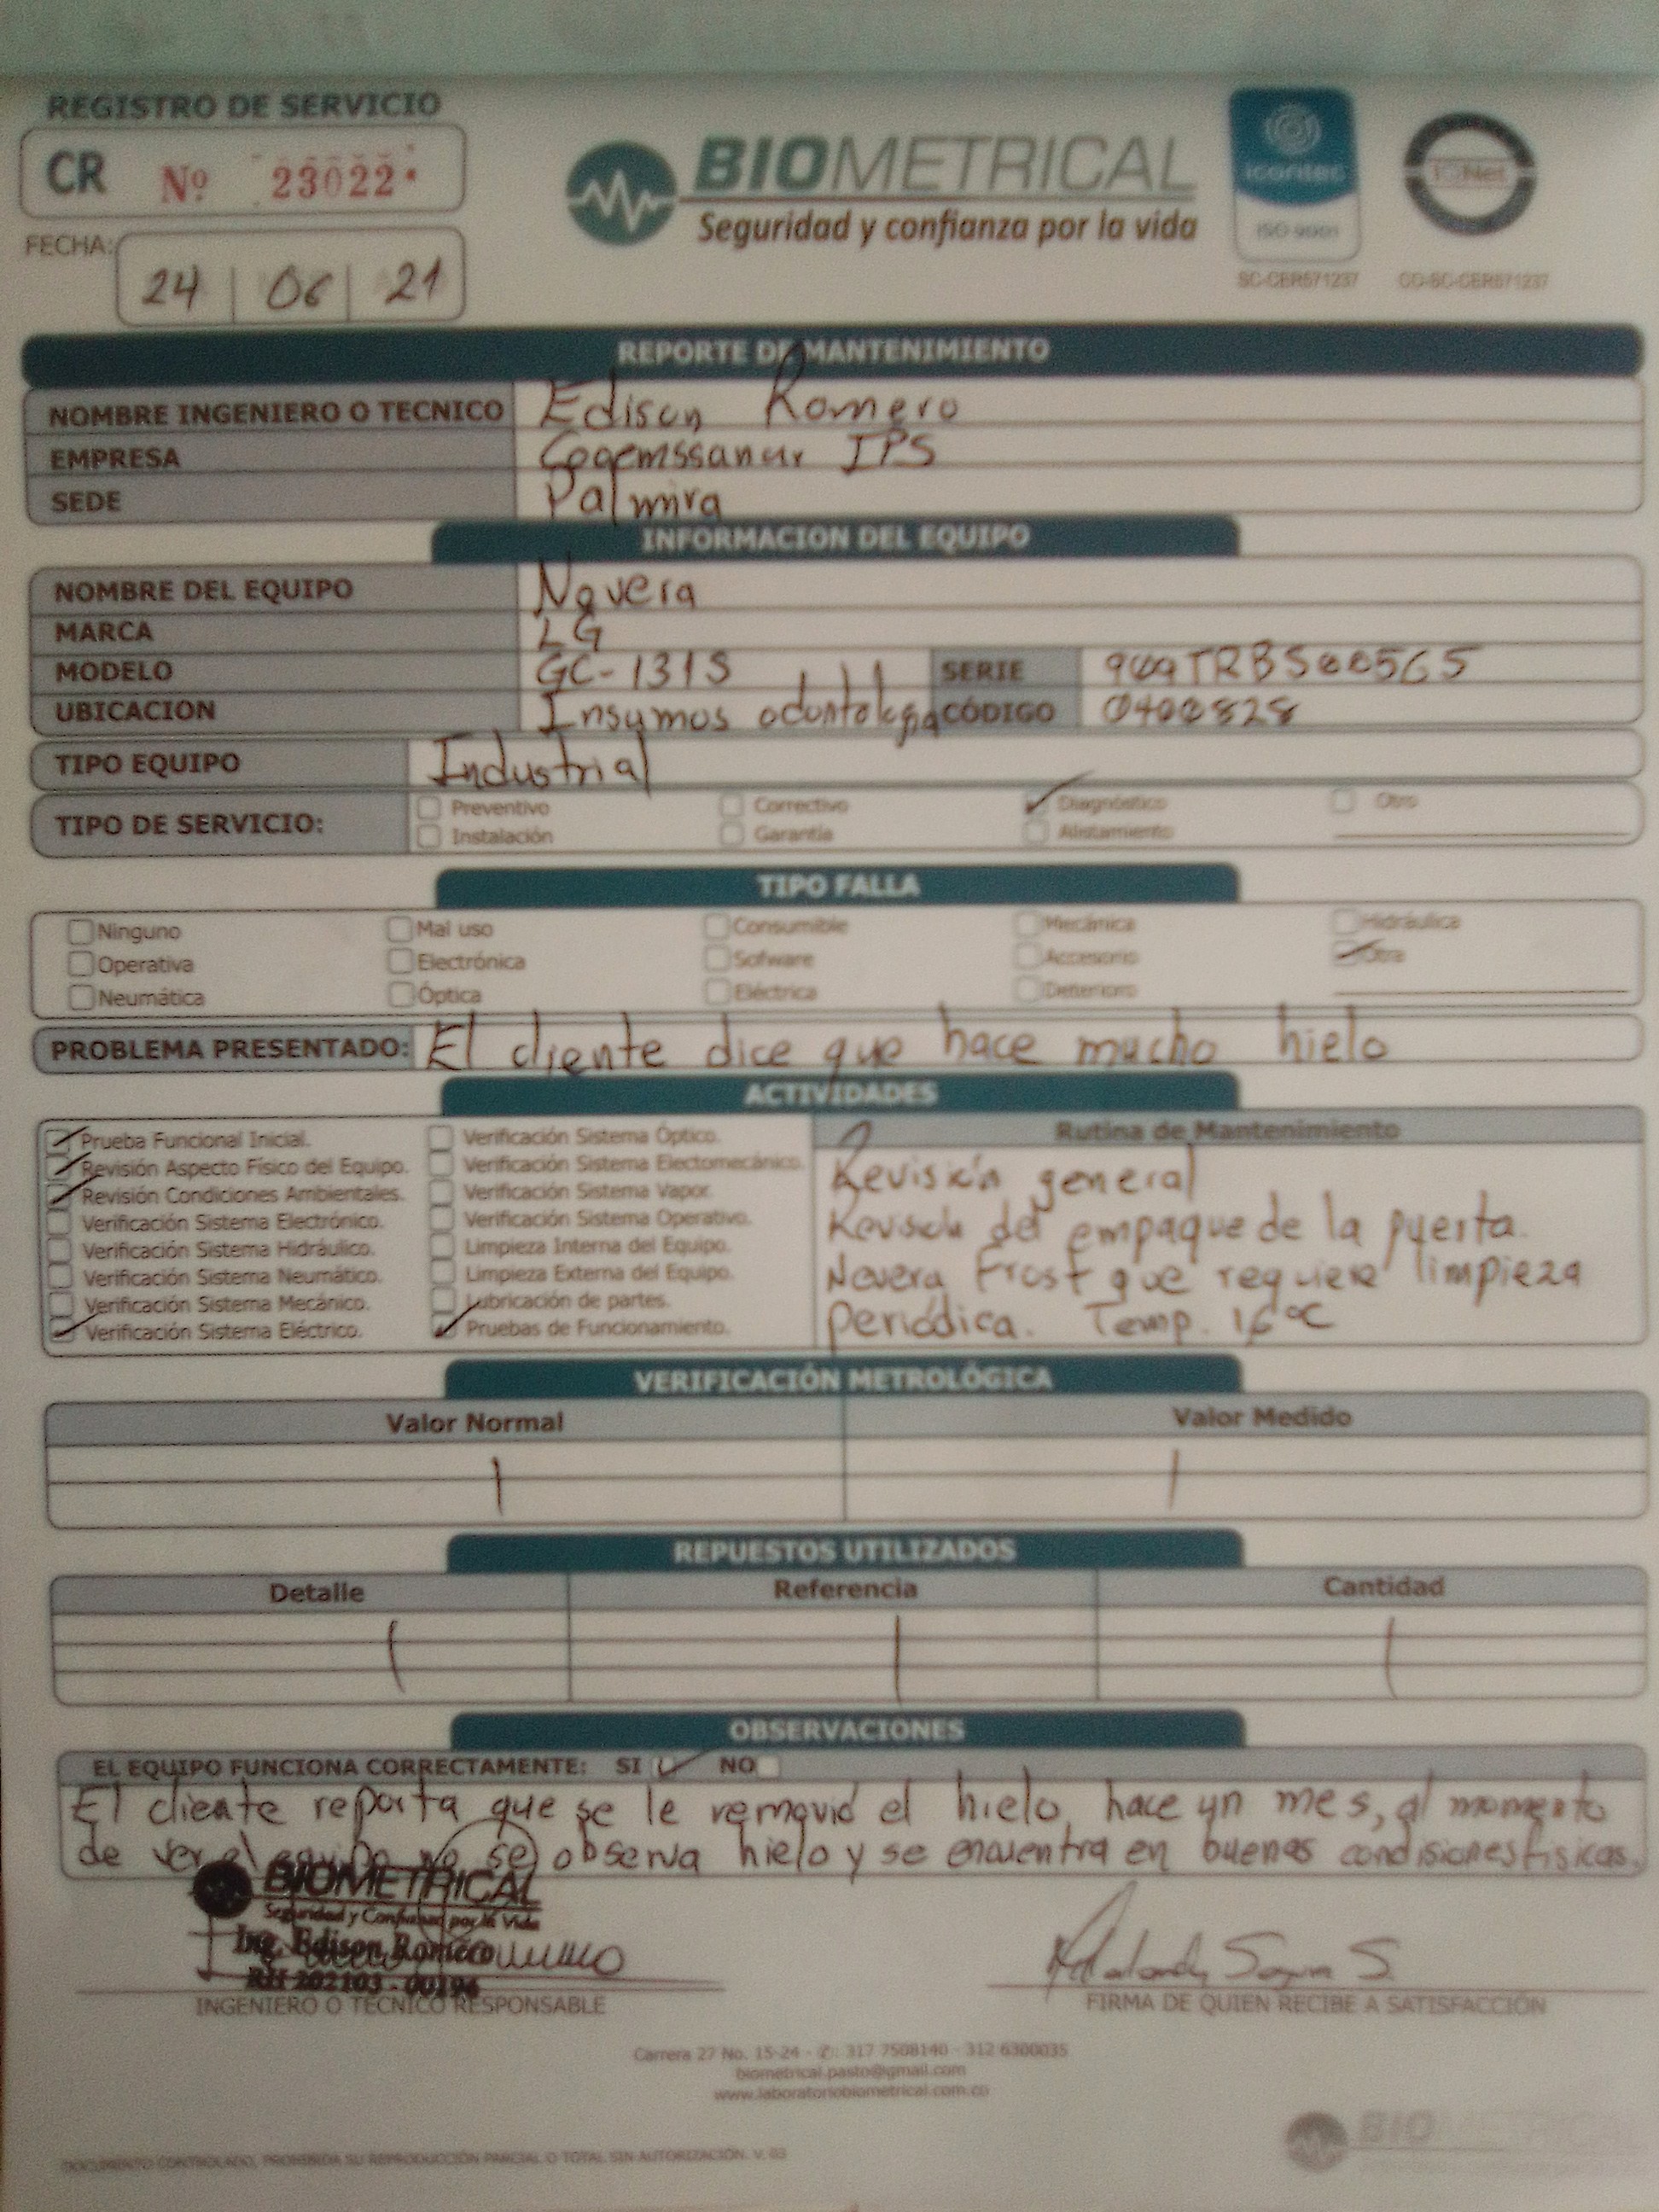 REGISTRO DE SERVICIO
CR Nº 23022
BIOMETRICAL
Seguridad y confianza por la vida
icontec
ISO 9001
SC-CER571237
IQNet
CO-SC-CER571237
FECHA: 24 | 06 | 21
REPORTE DE MANTENIMIENTO
NOMBRE INGENIERO O TECNICO Edison Romero
EMPRESA Cogemssanar IPS
SEDE Palmira
INFORMACION DEL EQUIPO
NOMBRE DEL EQUIPO Nevera
MARCA LG
MODELO GC-131S SERIE
UBICACION Insumos odontologia CÓDIGO 0400828
TIPO EQUIPO Industrial
TIPO DE SERVICIO:
Preventivo Correctivo Diagnóstico Otro
Instalación Garantía Alistamiento
TIPO FALLA
Ninguno Mal uso Consumible Mecánica Hidráulica
Operativa Electrónica Sofware Accesorio Otra
Neumática Óptica Eléctrica Deterioro
PROBLEMA PRESENTADO: El cliente dice que hace mucho hielo
ACTIVIDADES
Prueba Funcional Inicial.
Revisión Aspecto Físico del Equipo.
Revisión Condiciones Ambientales.
Verificación Sistema Electrónico.
Verificación Sistema Hidráulico.
Verificación Sistema Neumático.
Verificación Sistema Mecánico.
Verificación Sistema Eléctrico.
Verificación Sistema Óptico.
Verificación Sistema Electomecánico.
Verificación Sistema Vapor.
Verificación Sistema Operativo.
Limpieza Interna del Equipo.
Limpieza Externa del Equipo.
Lubricación de partes.
Pruebas de Funcionamiento.
Rutina de Mantenimiento
Revisión general
Revisión del empaque de la puerta.
Nevera Frost que requiere limpieza
Periódica. Temp. 16°C
VERIFICACIÓN METROLÓGICA
Valor Normal Valor Medido
REPUESTOS UTILIZADOS
Detalle Referencia Cantidad
OBSERVACIONES
EL EQUIPO FUNCIONA CORRECTAMENTE: SI NO
El cliente reporta que se le removió el hielo hace un mes, al momento
de ver el equipo no se observa hielo y se encuentra en buenas condisiones fisicas.
BIOMETRICAL
Seguridad y Confianza por la Vida
Ing. Edison Romero
RH 202103 - 00196
INGENIERO O TÉCNICO RESPONSABLE
FIRMA DE QUIEN RECIBE A SATISFACCIÓN
Carrera 27 No. 15-24 - ✆: 317 7508140 - 312 6300035
biometrical.pasto@gmail.com
www.laboratoriobiometrical.com.co
DOCUMENTO CONTROLADO, PROHIBIDA SU REPRODUCCIÓN PARCIAL O TOTAL SIN AUTORIZACIÓN. V. 03
BIOMETRICAL